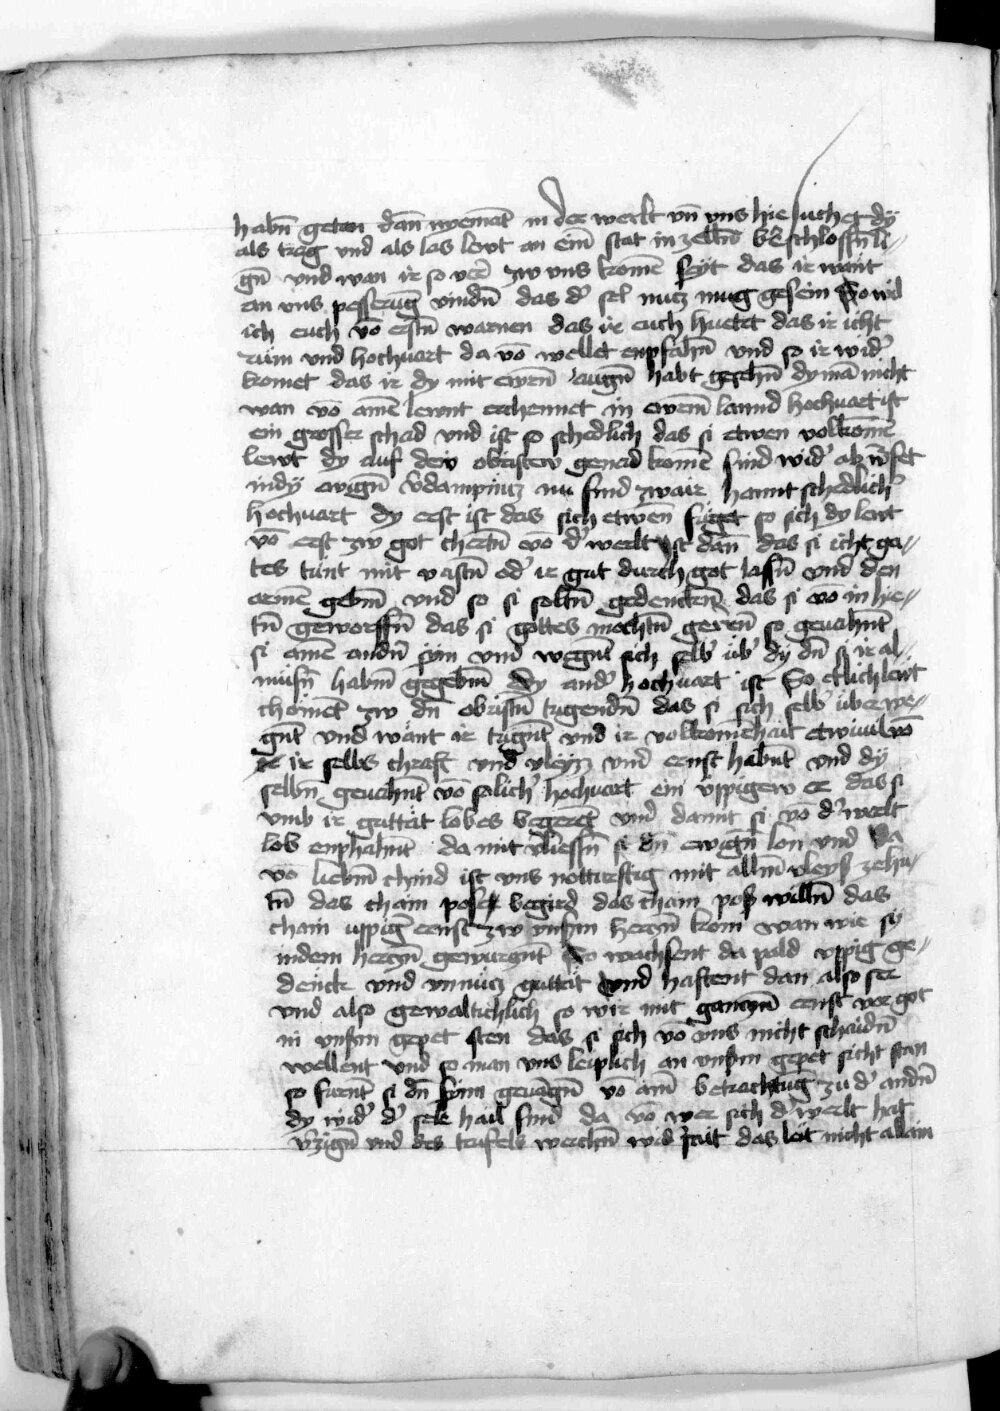 habn̄ getan dan̄ nyemāt in der werlt vn̄ vns hie suchet dy
als trag vnd als las lewt an ein̄ stat in zelln̄ beschlossn̄ li-
gn̄ vnd wan ir so verr zw vns komē seyt das ir want
an vns pesserūg vindn̄ das d' sel nucz mug gesein So wil
ich euch vō erstn̄ warnen das ir euch huetet das ir icht
rüm vnd hochuart da vō wellet enpfahn̄ vnd so ir wid'
komet das ir dy mit ewrn̄ augn̄ habt gesehn̄ dy mā nicht
wan vō amē lewnt erchennet in ewrm̄ lannd hochuart ist
ein grosser schad vnd ist so schedlich das si etwen volkomē
lewt dy auf dew obristew genad komē sind wid' ab w'fet
in dy ewign̄ v'dampnucz nu sind zwair hannt schedlich'
hochuart dy erst ist das sich etwen füget so sich dy lewt
vō erst zw got chertn̄ vō d' werlt ist dan̄ das si icht gu-
tes tünt mit vastn̄ od' ir gut durch got lassn̄ vnd den
armē gebm̄ vnd so si soltn̄ gedencken̄ das si vō in hie-
tn̄ geworffn̄ das si gottes mochtn̄ geren̄ so geuahn̄t
si amē andn̄ syn vnd wegn̄t sich selb' üb' dy dn̄ si ir al-
musn̄ habm̄ gegebm̄ Dy and' hochuart ist So etlich lewt
chömēt zw dn̄ obristn̄ tugendn̄ das si sich selb' überwe-
gn̄t vnd wänt ir tugn̄t vnd ir volkomēhait etwiuil vō
ir selbs chraft vnd vleyzz vnd ernst habn̄t vnd dy
selbn̄ geuahn̄t vō solich' hochuart ein üppigew er das si
vmb ir guttat lobes begerēt vnd damit si vō d' werlt
lob enphahn̄t da mit v'liessn̄ si dn̄ ewign̄ lon vnd Da
vō liebm̄ chind ist vns notturftig mit allm̄ vleyß zehu-
tn̄ das chain poser begird das chain poß willn̄ das
chain üppig ernst zw vnsm̄ herczn̄ kom wan wie sy
in dem herczn̄ gewurgn̄t So wachsent da pald vppig ge-
denck vnd vnnücz guttat vnd haftent dan also ser
vnd also gewaltichlich so wir mit ganczm̄ ernst vor got
in vnsm̄ gepet sten das si sich vō vns nicht schaidn̄
wellent vnd so man vns leiplich an vnsm̄ gepet sicht stan
so fürnt si dn̄ synn geuāgn̄ vō am̄ betrachtūg zu d' andn̄
dy wid' d' sele hail sind da vō wer sich d' werlt hat
v'zign̄ vnd des teufels werchn̄ wid' sait das leit nicht allain